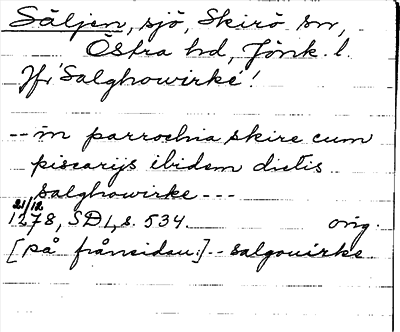 Säljen, sjö, Skirö sn,
Östra hd, Jönk. l.
Jfr 'Salghowirke'!
-- in parrochia skire cum
piscarijs ibidem dictis
salghowirke ---
21/12
1278, SD 1, s. 534. orig.
[på frånsidan:] -- salgouirke